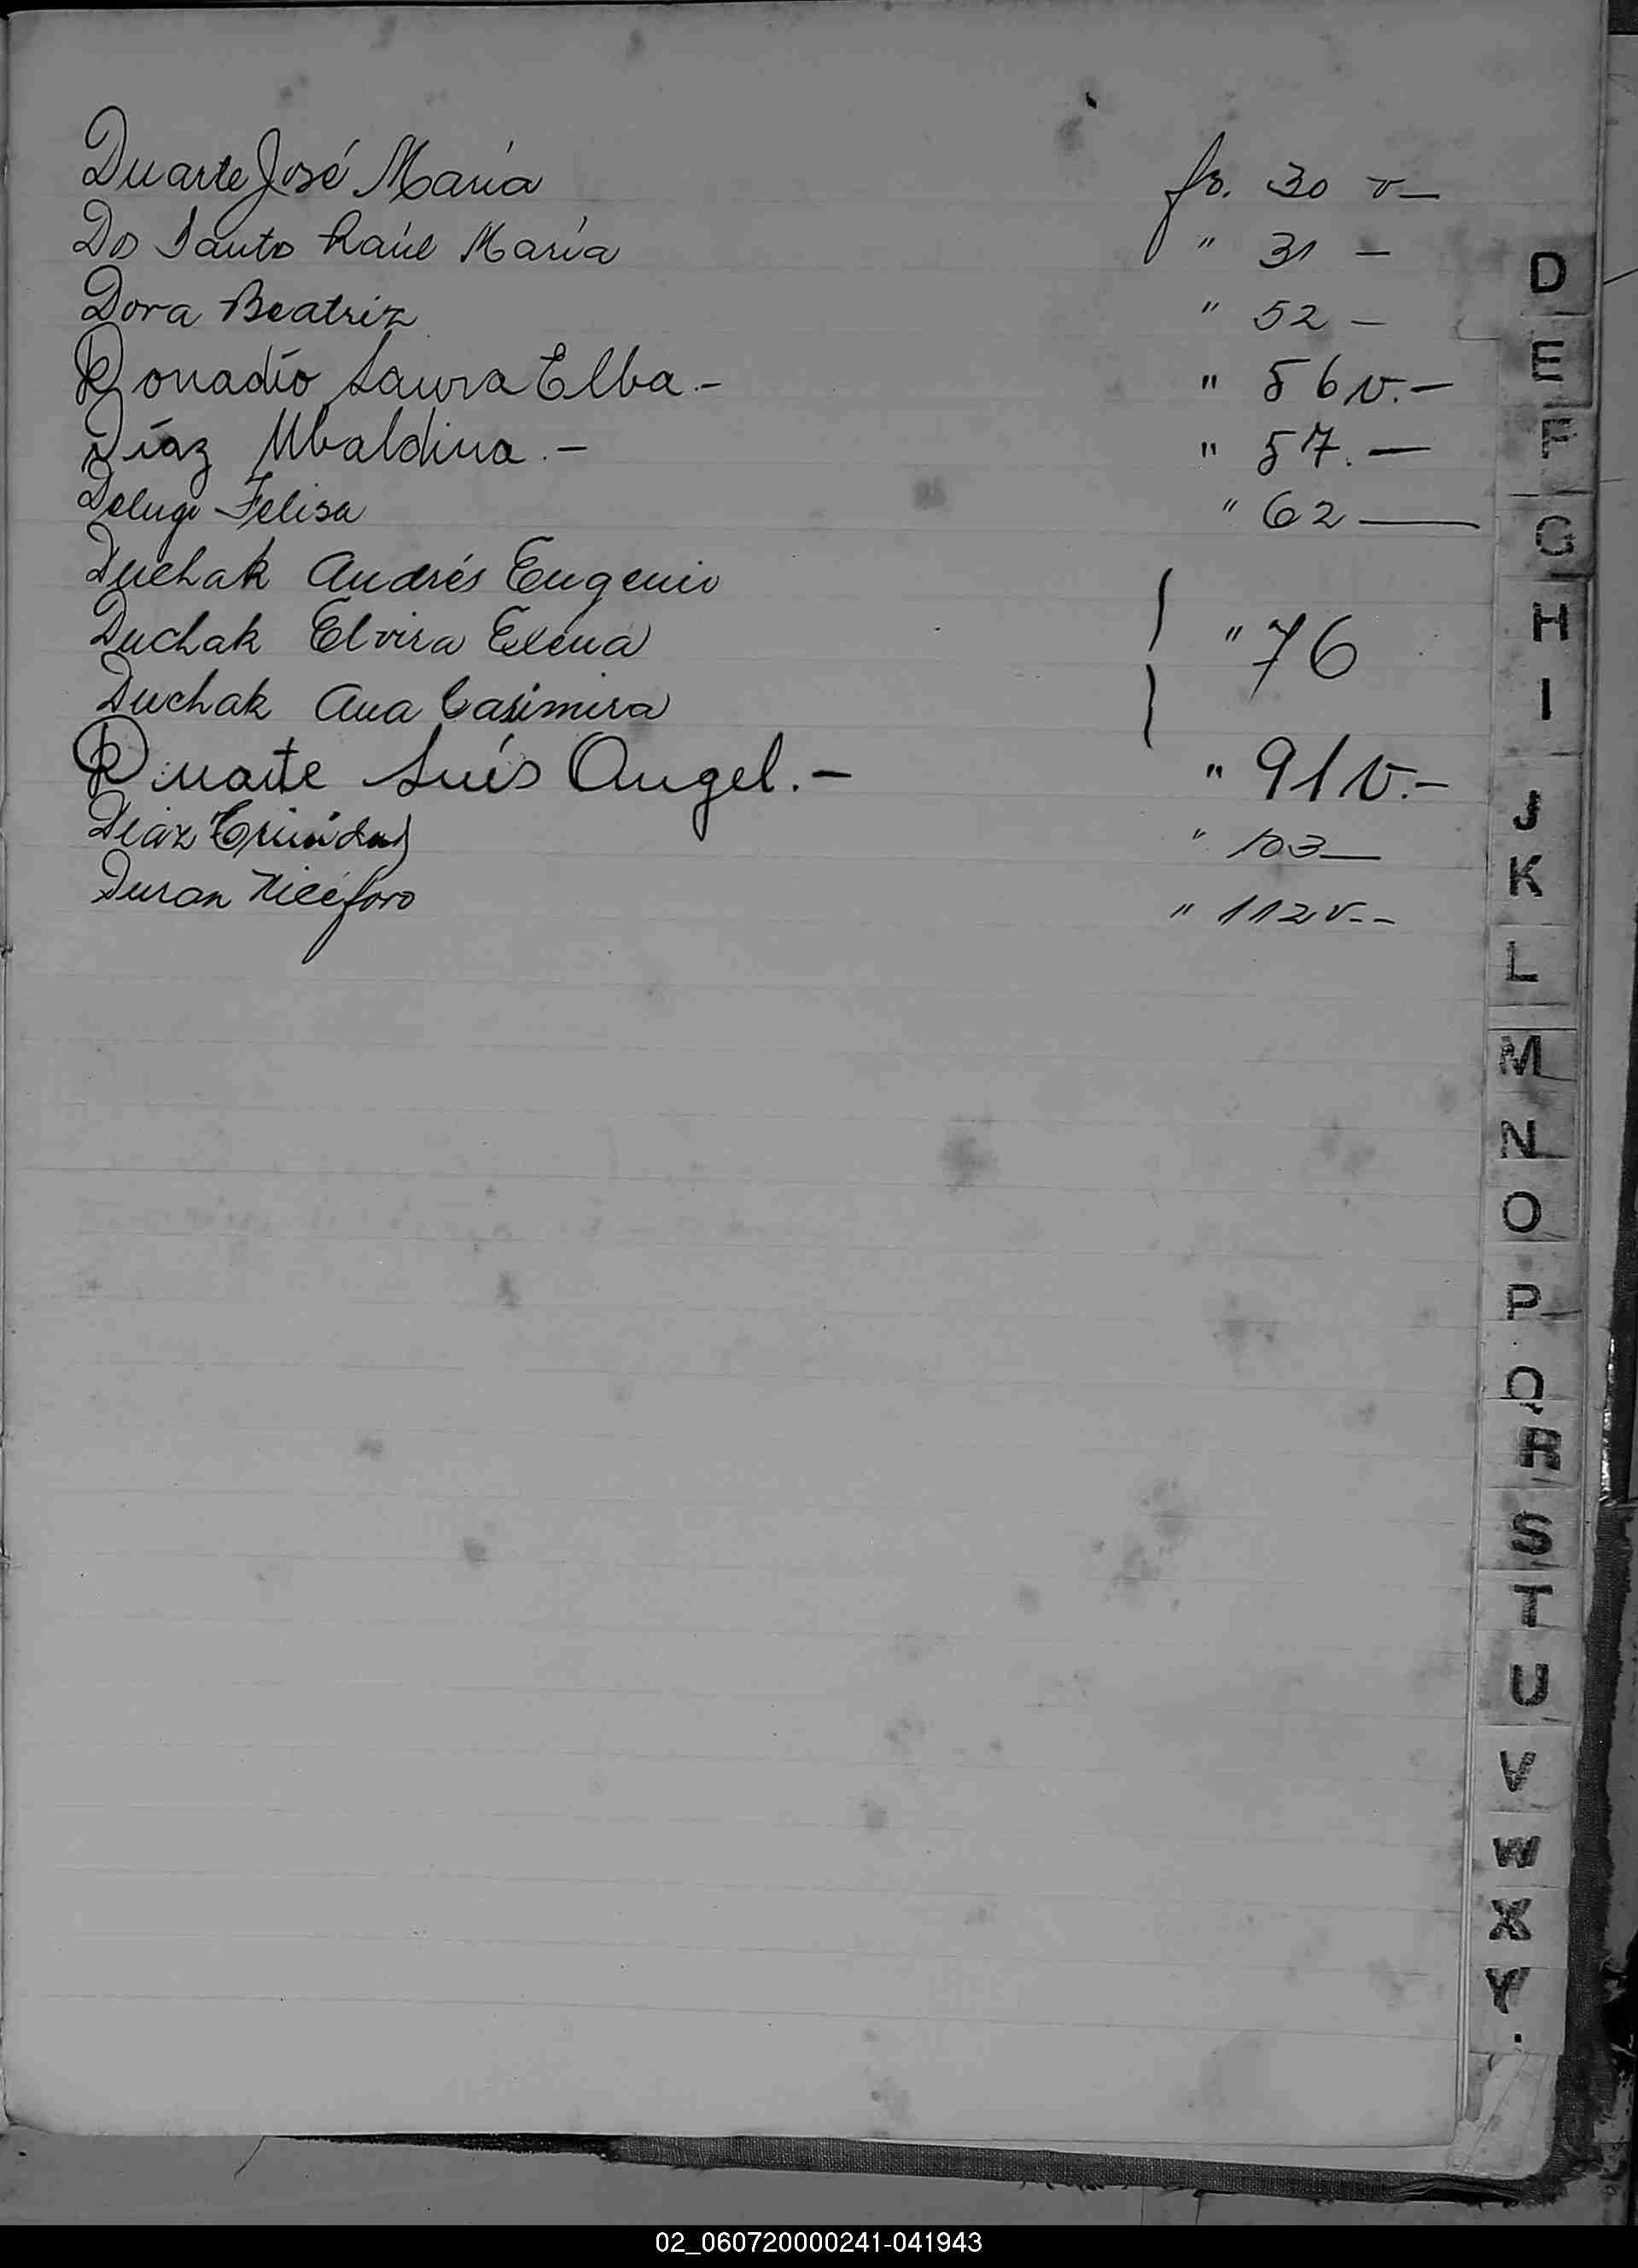 Duarte José María fo. 30 v—
Dos Santos Raúl María " 31 —
Dora Beatriz " 52 —
Donadío Laura Elba.- " 56 v.—
Díaz Ubaldina.- " 57.—
Felisa " 62 —
Duchak Andrés Eugenio
Duchak Elvira Elena " 76
Duchak Ana Casimira
Duarte Luís Angel.- " 91 v.-
Díaz Trinidad " 103 —
Duran Nicéforo " 112 v--
D
E
F
G
H
I
J
K
L
M
N
O
P
Q
R
S
T
U
V
W
X
Y
02_060720000241-041943